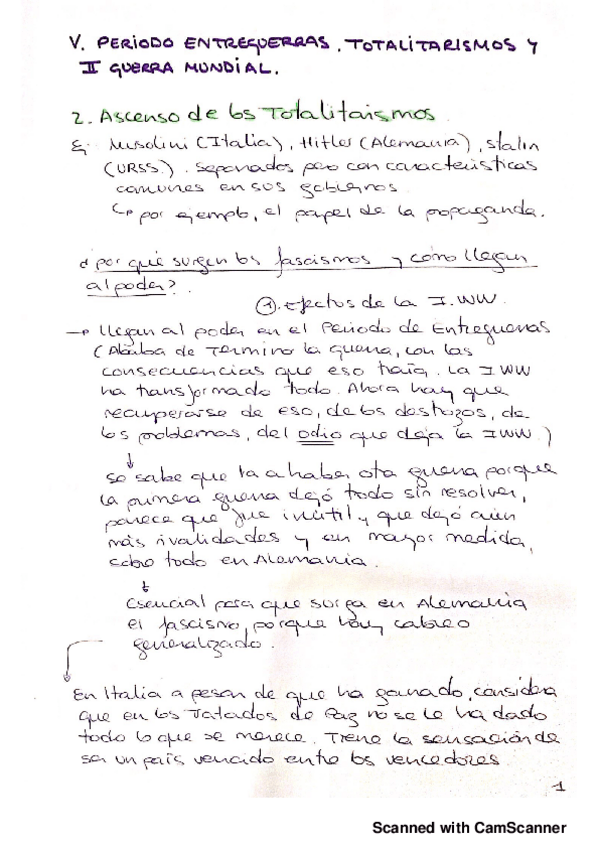 V. PERIODO ENTREGUERRAS, TOTALITARISMOS Y
II GUERRA MUNDIAL.
2. Ascenso de los Totalitarismos
Ej. Musolini (Italia), Hitler (Alemania), Stalin
(URSS). separados pero con características
comunes en sus gobiernos
↳ por ejemplo, el papel de la propaganda.
¿por qué surgen los fascismos y cómo llegan
al poder?
①. efectos de la I.WW.
→ llegan al poder en el Periodo de Entreguerras
(Acaba de termino la guerra, con las
consecuencias que eso traía. La I WW
ha transformado todo. Ahora hay que
recuperarse de eso, de los destrozos, de
los problemas, del odio que deja la I WW.)
↓
se sabe que va a haber otra guerra porque
la primera guerra dejó todo sin resolver,
parece que fue inútil y que dejó aún
más rivalidades y en mayor medida,
sobre todo en Alemania.
↓
Esencial para que surga en Alemania
el fascismo, porque hay cabreo
generalizado.
En Italia a pesar de que ha ganado, considera
que en los Tratados de Paz no se le ha dado
todo lo que se merece. Tiene la sensación de
ser un país vencido entre los vencedores
1
Scanned with CamScanner